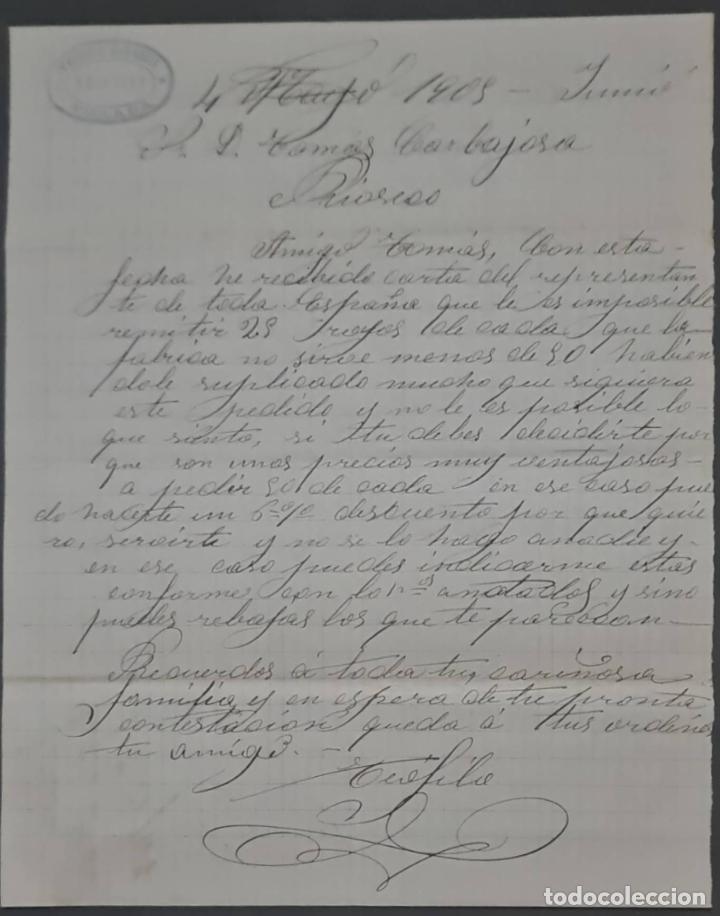 4 Mayo 1905 - Junio
Sr. D. Tomás Carbajosa
Rioseco
Amigo Tomás, Con esta
fecha he recibido carta del representan
te de toda España que le es imposible
remitir 25 rojos de cada que la
fabrica no sirve menos de 50 habien
dole suplicado mucho que siguiera
este pedido y no le es posible lo
que siento, si tu debes decidirte por
que son unos precios muy ventajosos
a pedir 50 de cada en ese caso pue
do hacerte un 6 % descuento por que quie
ro, servirte y no se lo hago a nadie y
en ese caso puedes indicarme estas
conforme con los nos anotados y sino
puedes rebajas los que te parezcan
Recuerdos á toda tu cariñosa
familia y en espera de tu pronta
contestacion queda á tus ordenes
tu amigo. -
Teófilo
todocoleccion